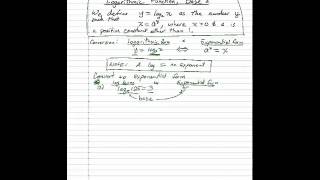 Logarithmic Function, Base a
We define y = logₐx as the number y
such that x = aʸ, where x > 0 & a is
a positive constant other than 1.
Conversion: Logarithmic form & Exponential form
y = logₐx ⇔ aʸ = x
NOTE: A log is an exponent
Convert to exponential form
log form Exponential form
a) log₅125 = 3
base